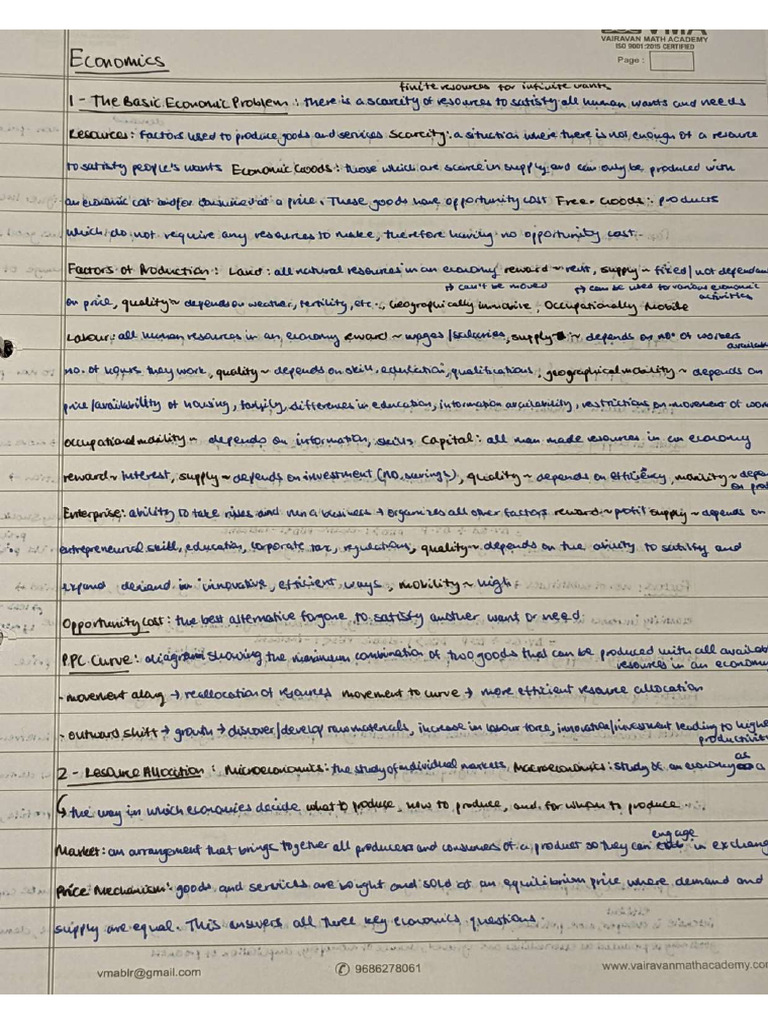 VMA
VAIRAVAN MATH ACADEMY
ISO 9001:2015 CERTIFIED
Page :
Economics
finite resources for infinite wants
1 - The Basic Economic Problem : there is a scarcity of resources to satisfy all human wants and needs
Resources: factors used to produce goods and services Scarcity: a situation where there is not enough of a resource
to satisfy people's wants Economic Goods: those which are scarce in supply and can only be produced with
an economic cost and/or consumed at a price. These goods have opportunity cost Free Goods: products
which do not require any resources to make, therefore having no opportunity cost.
Factors of Production: Land: all natural resources in an economy reward ~ rent, supply ~ fixed/not dependant
↳ can't be moved ↳ can be used for various economic activities
on price, quality ~ depends on weather, fertility, etc., Geographically immobile, Occupationally Mobile
Labour: all human resources in an economy reward ~ wages/salaries, supply ~ depends on no. of workers available
no. of hours they work, quality ~ depends on skill, education, qualifications, geographical mobility ~ depends on
price/availability of housing, family, differences in education, information availability, restrictions on movement of
occupational mobility ~ depends on information, skills Capital: all man made resources in an economy
reward ~ interest, supply ~ depends on investment (no. savings), quality ~ depends on efficiency, mobility ~ on
Enterprise: ability to take risks and run a business → organizes all other factors reward ~ profit supply ~ depends on
entrepreneurial skill, education, corporate tax, regulations, quality ~ depends on the ability to satisfy and
expand demand in innovative, efficient ways, mobility ~ high
Opportunity Cost: the best alternative forgone to satisfy another want or need
P.P.C Curve: diagram showing the maximum combination of two goods that can be produced with all
resources in an economy
- movement along → reallocation of resources movement to curve → more efficient resource allocation
- outward shift → growth → discover/develop raw materials, increase in labour force, innovation/investment leading to
2 - Resource Allocation : Microeconomics: the study of individual markets, Macroeconomics: study of an economy as a
↳ the way in which economies decide what to produce, how to produce, and for whom to produce
Market: an arrangement that brings together all producers and consumers of a product so they can engage in
Price Mechanism: goods and services are bought and sold at an equilibrium price where demand and
supply are equal. This answers all three key economics questions.
vmablr@gmail.com
9686278061
www.vairavanmathacademy.co